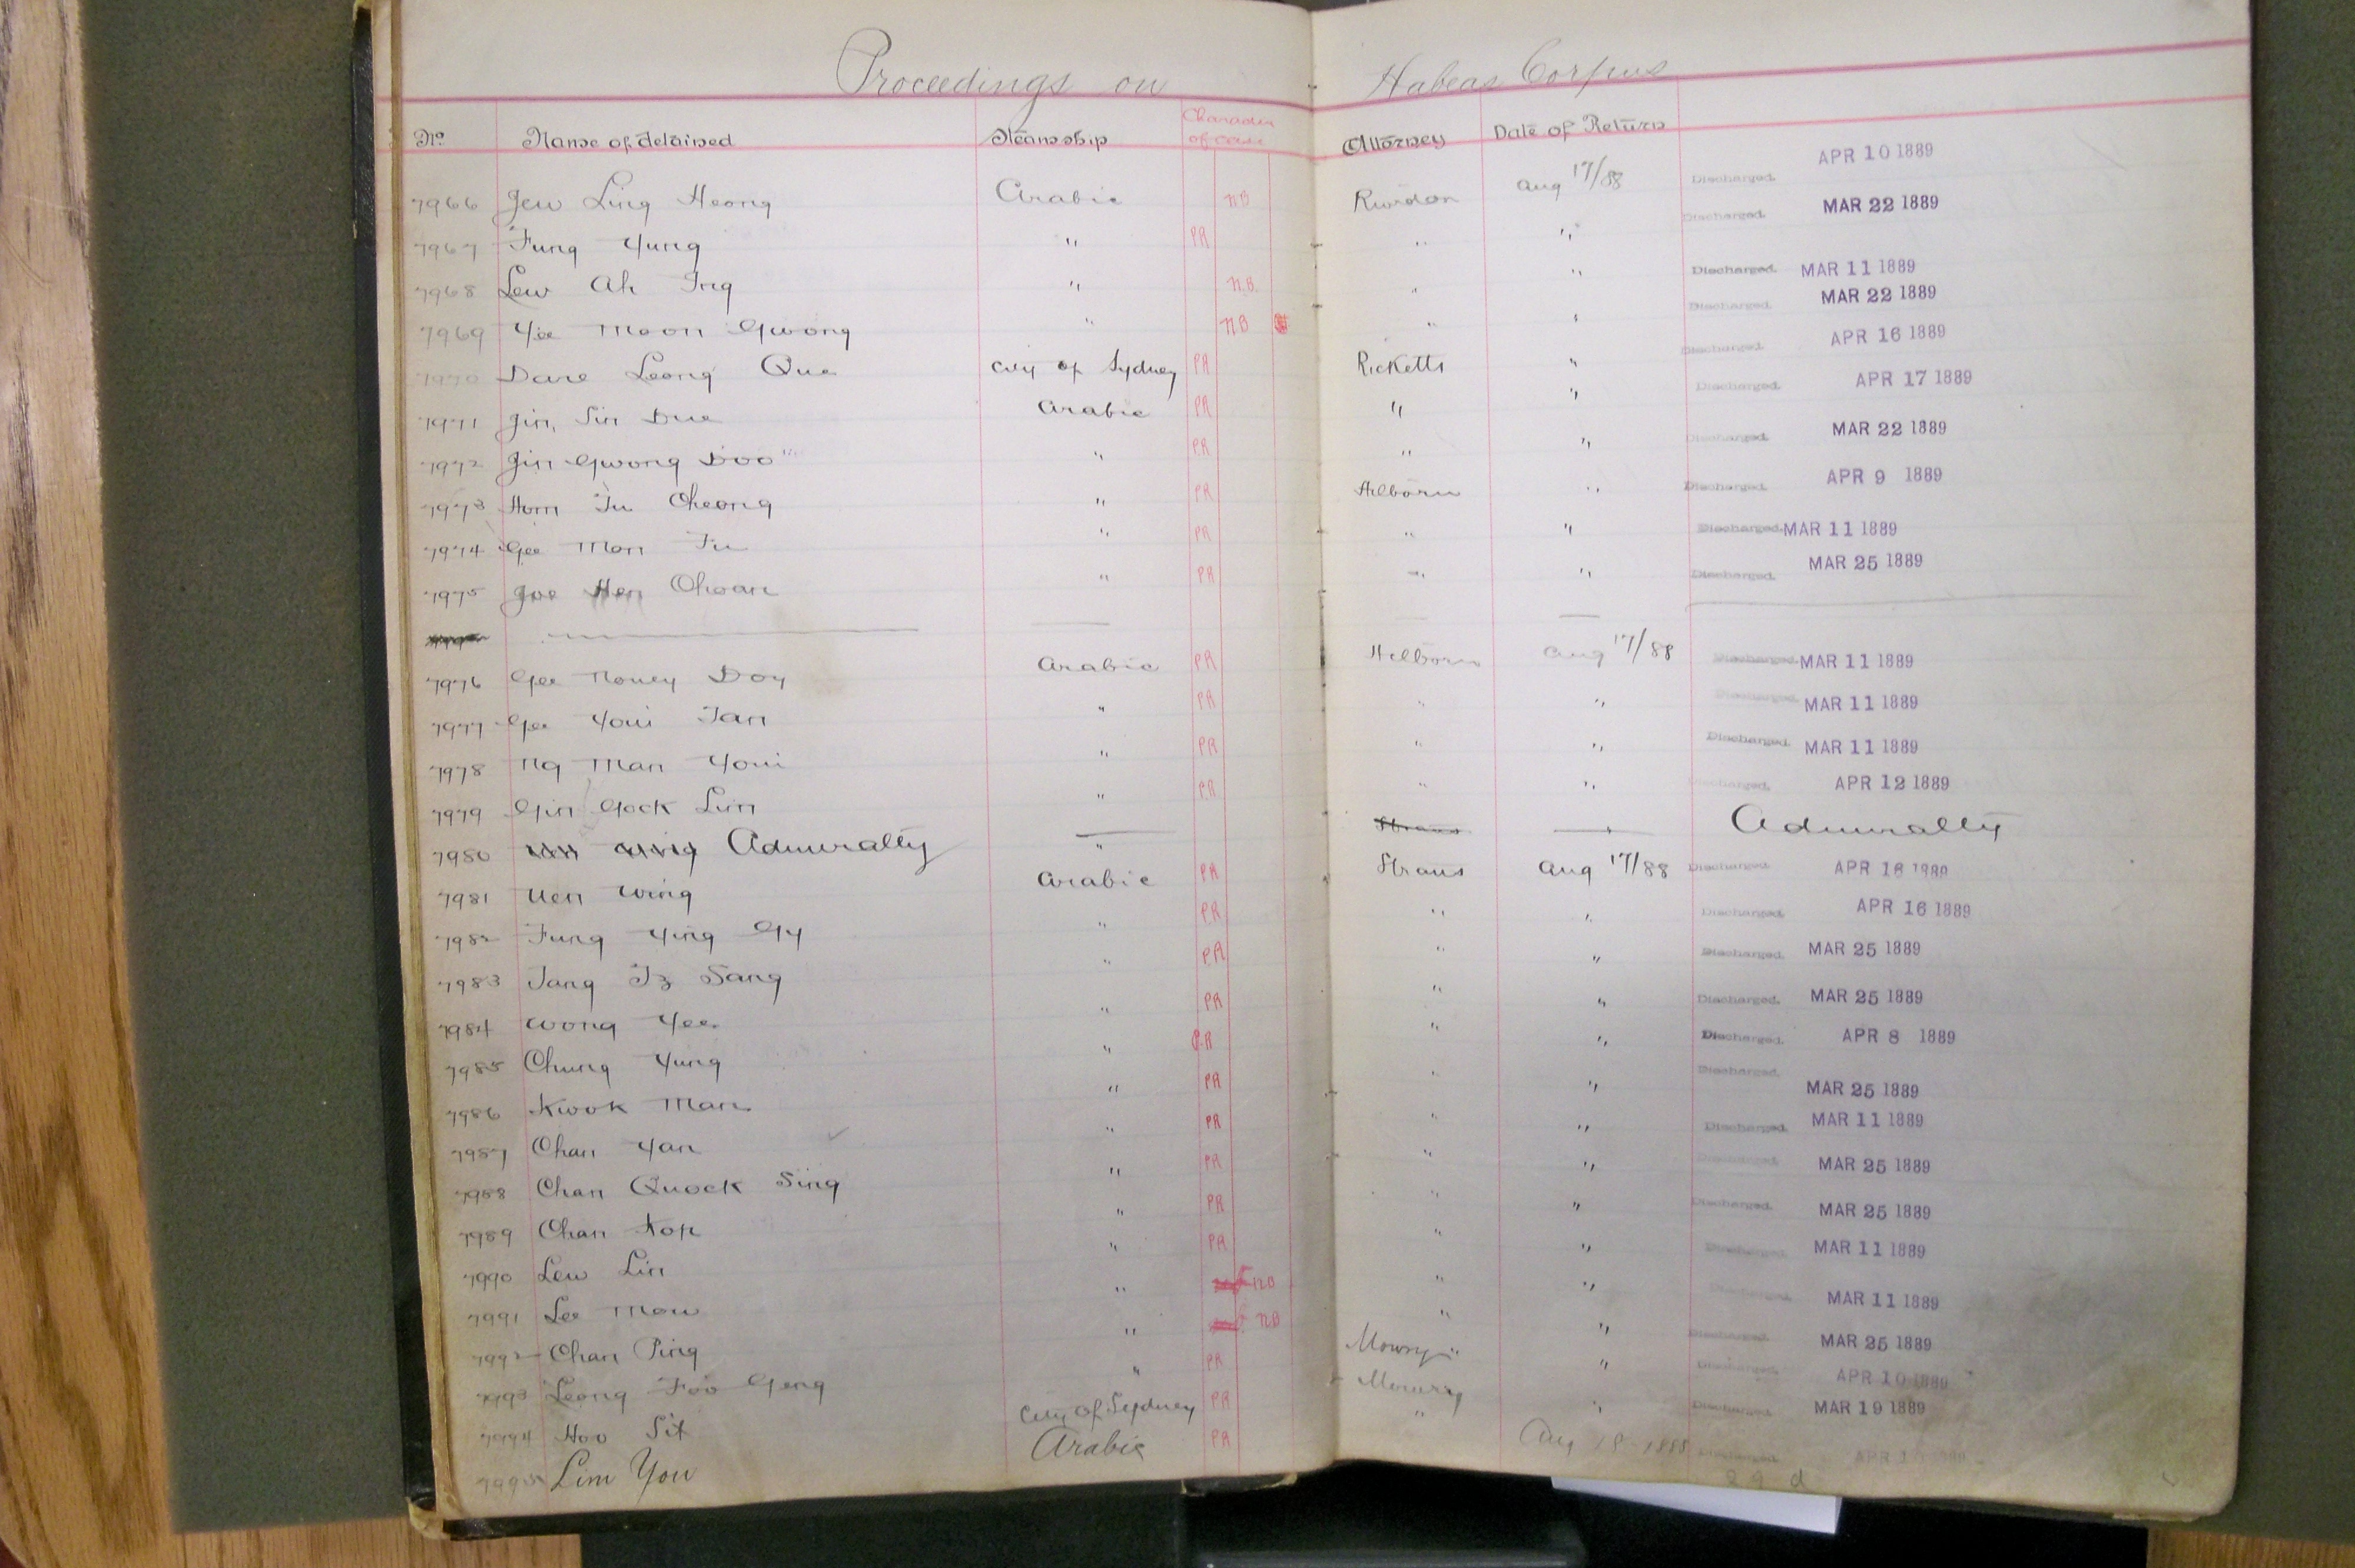 Proceedings on Habeas Corpus
No. Name of detained Steamship Character of case Attorney Date of Return
7966 Jew Ling Heong Arabic NB Riordan Aug 17/88 Discharged. APR 10 1889
7967 Fung Yung " PR " " Discharged. MAR 22 1889
7968 Lew Ah Ing " N.B. " " Discharged. MAR 11 1889
7969 Yee Moon Gwong " NB " " Discharged. MAR 22 1889
7970 Dare Leong Que City of Sydney PR Ricketts " Discharged. APR 16 1889
7971 Jin Sin Due Arabic PR " " Discharged. APR 17 1889
7972 Jin Gwong Doo " PR " " Discharged. MAR 22 1889
7973 Hom Tu Cheong " PR Hilborn " Discharged. APR 9 1889
7974 Gee Mon Fu " PR " " Discharged. MAR 11 1889
7975 Joe Hen Choan " PR " " Discharged. MAR 25 1889
7976 Gee Noney Doy Arabic PR Hilborn Aug 17/88 Discharged. MAR 11 1889
7977 Gee Youi Tan " PR " " Discharged. MAR 11 1889
7978 Ng Man Youi " PR " " Discharged. MAR 11 1889
7979 Gin Gock Lun " PR " " Discharged. APR 12 1889
7980 Admiralty " Straus Admiralty
7981 Uen Wing Arabic PR Straus Aug 17/88 Discharged. APR 16 1889
7982 Fung Ying Gy " PR " " Discharged. APR 16 1889
7983 Tang Tz Sang " PR " " Discharged. MAR 25 1889
7984 Wong Yee " PR " " Discharged. MAR 25 1889
7985 Chung Yung " PR " " Discharged. APR 8 1889
7986 Kwok Man " PR " " Discharged. MAR 25 1889
7987 Chan Yan " PR " " Discharged. MAR 11 1889
7988 Chan Quock Sing " PR " " Discharged. MAR 25 1889
7989 Chan Kop " PR " " Discharged. MAR 25 1889
7990 Lew Lin " PR " " Discharged. MAR 11 1889
7991 Lee Mow " NB " " Discharged. MAR 11 1889
7992 Chan Ping " NB Mowry " " Discharged. MAR 25 1889
7993 Leong Foo Geng " PR Mowry " Discharged. APR 10 1889
7994 Hoo Sit City of Sydney PR " " Discharged. MAR 19 1889
7995 Lim You Arabic PR Aug 18 1888 Discharged.